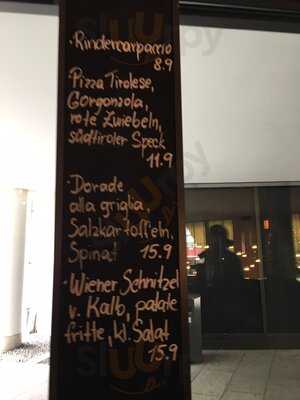 ·Rindercarpaccio
8.9
·Pizza Tirolese,
Gorgonzola,
rote Zwiebeln,
südtiroler Speck
11.9
·Dorade
alla griglia,
Salzkartoffeln,
Spinat 15.9
·Wiener Schnitzel
v. Kalb, patate
fritte, kl. Salat
15.9